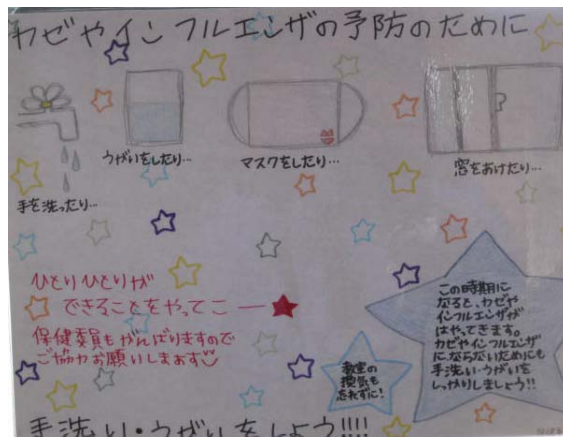 カゼやインフルエンザの予防のために
手を洗ったり…
うがいをしたり…
マスクをしたり…
窓をあけたり…
ひとりひとりが
できることをやってこー★
保健委員もがんばりますので
ご協力お願いしまあす
教室の
換気も
忘れずに!
この時期に
なると、カゼや
インフルエンザが
はやってきます。
カゼやインフルエンザ
にならないためにも
手洗い・うがいを
しっかりしましょう!!
手洗い・うがいをしよう!!!!